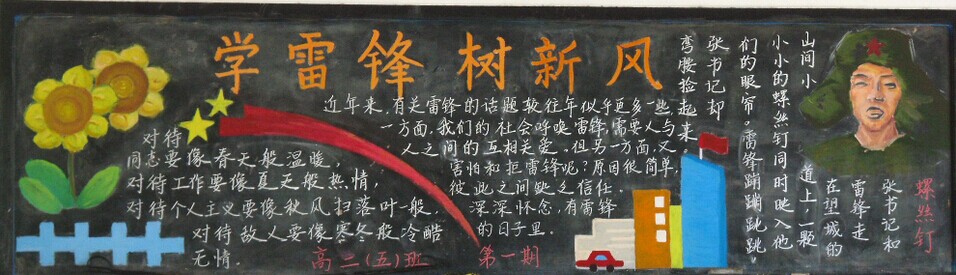 学雷锋 树新风
对待
同志要像春天般温暖，
对待工作要像夏天般热情，
对待个人主义要像秋风扫落叶一般，
对待敌人要像寒冬般冷酷
无情。
近年来，有关雷锋的话题较往年似乎更多一些，
一方面，我们的社会呼唤雷锋，需要人与
人之间的互相关爱。但另一方面，又
害怕和拒雷锋呢？原因很简单，
彼此之间缺乏信任。
深深怀念，有雷锋
的日子里。
高二（五）班 第一期
螺丝钉
张书记和
雷锋走
在望城的
道上，一颗
小小的螺丝钉同时映入他
们的眼帘。雷锋蹦蹦跳跳
山间小
张书记却
弯腰捡起来